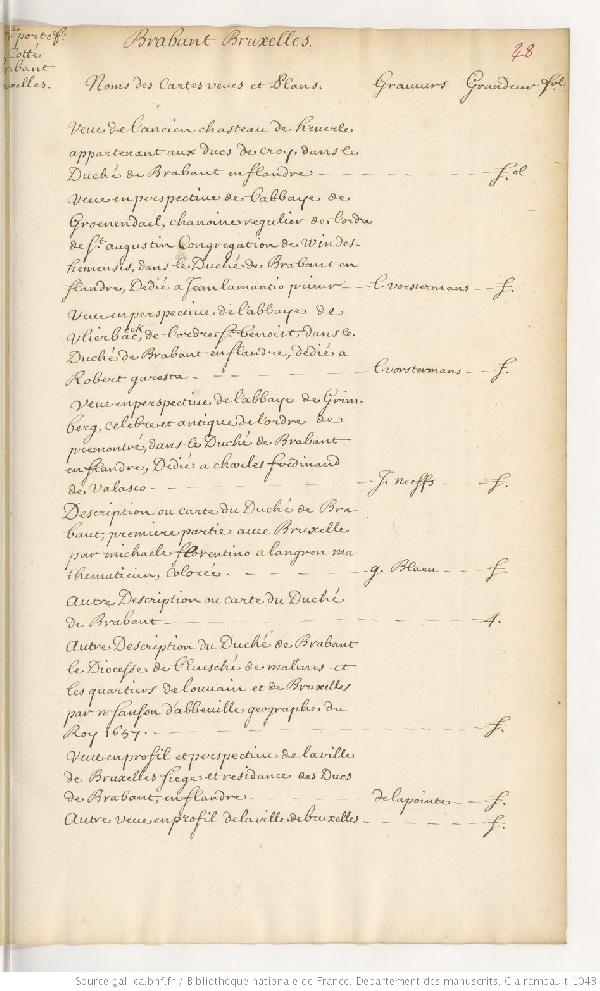 portef.
Cotté
Brabant Bruxelles.
48
Noms des Cartes veues et Plans. Graveurs Grandeur fol
Veue de l'ancien chasteau de heverle
appartenant aux ducs de croy, dans le
Duché de Brabant en flandre - - - - f.ol
Veue en perspective de l'abbaye de
Groenendael, chanoine regulier de l'ordre
de St. augustin Congregation de Windes-
hemensis, dans le Duché de Brabant en
flandre, Dedié a Jean lamantio prieur - l. vorstermans - f.
Veue en perspective de l'abbaye de
vlierback, de l'ordre St. benoist, dans le
Duché de Brabant en flandre, dédié a
Robert garesta - - - l. vorstermans - f.
Veue en perspective de l'abbaye de Grim-
berg, celebre et antique de l'ordre de
premontré, dans le Duché de Brabant
en flandre, Dedié a charles ferdinand
de Valasco - - - - J. neeffs - f.
Description ou carte du Duché de Bra-
bant, premiere partie avec Bruxelle
par michaele florentino a langren ma
thematicien, Colorée. - - - g. Blaeu - f.
Autre Description ou carte du Duché
de Brabant - - - - - 4.
Autre Description du Duché de Brabant
le Diocesse de l'Evesché de malines et
les quartiers de louvain et de Bruxelles
par n. sanson d'abbeville geographe du
Roy 1657. - - - - f.
Veue en profil et perspective de la ville
de Bruxelles siege et residance des Ducs
de Brabant, en flandre - - - delapointe - f.
Autre veue en profil de la ville de bruxelles - - - f.
Source gallica.bnf.fr / Bibliothèque nationale de France. Département des manuscrits. Clairambault 1043